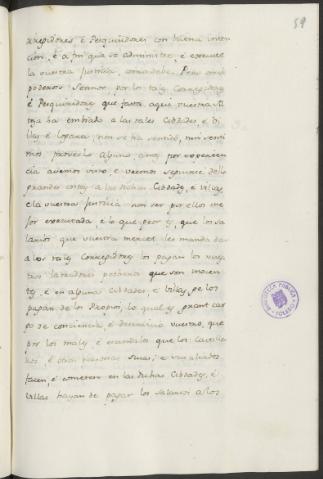 59
rregidores, é Pesquiridores con buena inten
cion, é a fin que se administre, é execute
la vuestra justicia, é mui
poderoso Sennor, por los tales Corregidores
é Pesquiridores que fasta aqui vuestra Al
teza ha embiado a las tales Cibdades, é Vi
llas, é logares, non se ha sentido, nin senti
mos provecho alguno, antes por experien
cia avemos visto, é vemos seguirse dello
grandes costas a las dichas Cibdades, é villas
é la vuestra justicia non ser por ellos me
jor executada, é lo que peor es, que los sa
larios que vuestra merced les manda dar
a los tales Corregidores los pagan los vues
tros labradores pecheros que son inocen
tes, é en algunas Cibdades, é Villas se los
pagan de los Propios, lo qual es grant car
go de conciencia, é deservicio vuestro, que
por los males, é escandalos que los Cavalle
ros, é otras personas suias, é sus aliados
facen, é cometen en las dichas Cibdades, é
villas hayan de pagar los salarios a los
BIBLIOTECA PUBLICA
TOLEDO